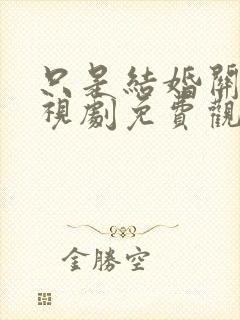 只是結婚關
視劇免費觀
金勝空